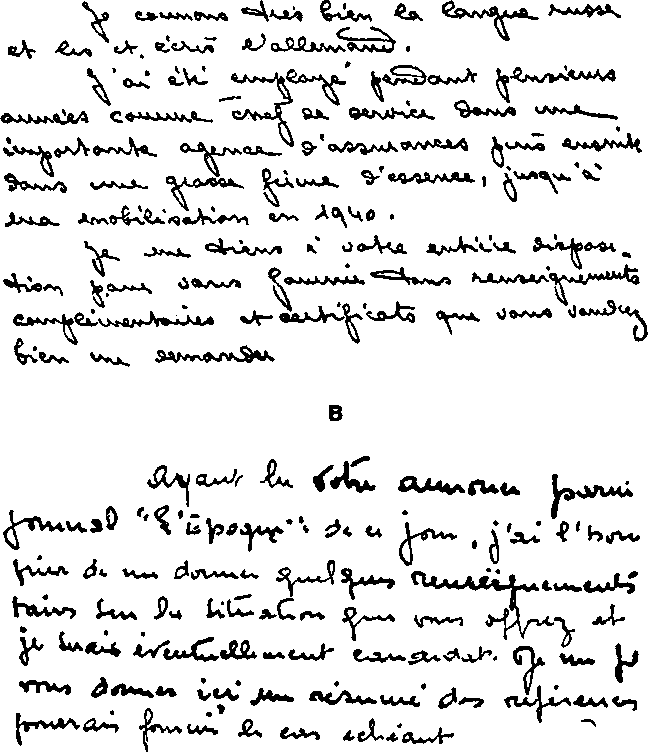 Je connais très bien la langue russe
et lis et écris l'allemand.
J'ai été employé pendant plusieurs
années comme chef de service dans une
importante agence d'assurances puis ensuite
dans une grosse firme d'essence, jusqu'à
ma mobilisation en 1940.
Je me tiens à votre entière disposi-
tion pour vous fournir tous renseignements
complémentaires et certificats que vous voudrez
bien me demander
B
Ayant lu votre annonce parui
journal "L'Epoque" de ce jour, j'ai l'hon
de me donner quelques renseignements
taires sur la situation que vous offrez et
je serais éventuellement candidat. Je me pe
vous donner ici un résumé des références
pourrais fournir le cas échéant